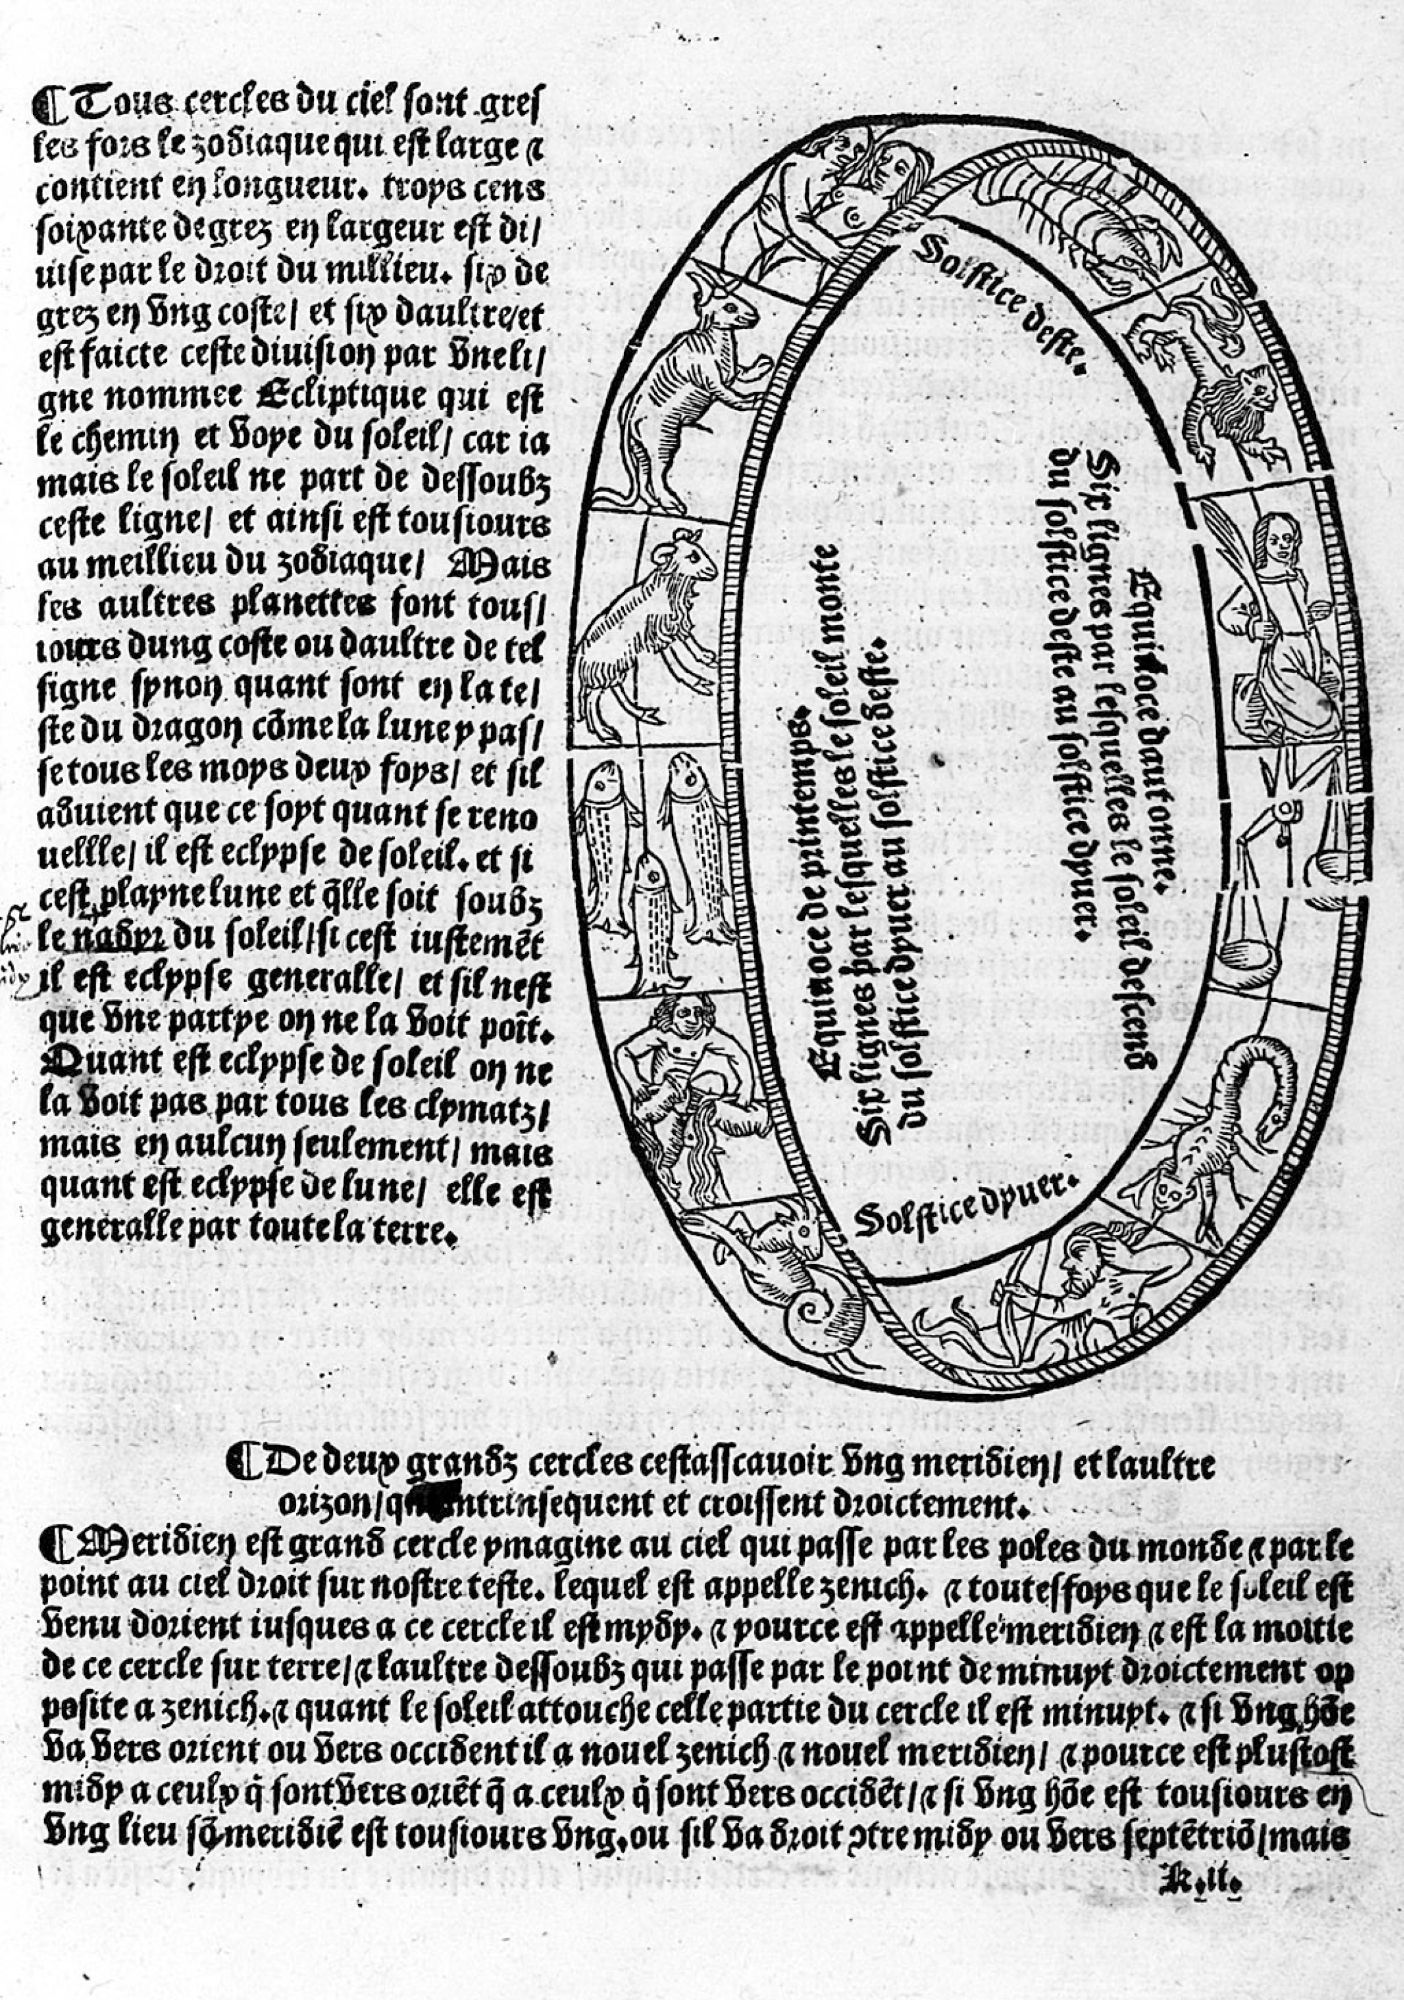 ¶ Tous cercles du ciel sont gres
les fors le zodiaque qui est large ⁊
contient en longueur. troys cens
soixante degrez en largeur est di/
uise par le droit du millieu. six de
grez en vng coste/ et six daultre/et
est faicte ceste diuision par vne li/
gne nommee Ecliptique qui est
le chemin et voye du soleil/ car ia
mais le soleil ne part de dessoubz
ceste ligne/ et ainsi est tousiours
au meillieu du zodiaque/ Mais
les aultres planettes sont tous/
iours dung coste ou daultre de tel
signe synon quant sont en la te/
ste du dragon cõme la lune y pas/
se tous les moys deux foys/ et sil
aduient que ce soyt quant se reno
uellle/ il est eclypse de soleil. et si
cest playne lune et q̃lle soit soubz
le nadyr du soleil/si cest iustemẽt
il est eclypse generalle/ et sil nest
que vne partye on ne la voit poĩt.
Quant est eclypse de soleil on ne
la voit pas par tous les clymatz/
mais en aulcun seulement/ mais
quant est eclypse de lune/ elle est
generalle par toute la terre.
Solstice deste.
Equinoce dautonne.
Six lignes par lesquelles le soleil descend
du solstice deste au solstice dyuer.
Equinoce de printemps.
Six lignes par lesquelles le soleil monte
du solstice dyuer au solstice deste.
Solstice dyuer.
¶ De deux grandz cercles cestasscauoir vng meridien/ et laultre
orizon/ intrinsequent et croissent droictement.
¶ Meridien est grand cercle ymagine au ciel qui passe par les poles du monde ⁊ par le
point au ciel droit sur nostre teste. lequel est appelle zenich. ⁊ toutesfoys que le soleil est
venu dorient iusques a ce cercle il est mydy. ⁊ pource est appelle meridien ⁊ est la moitie
de ce cercle sur terre/⁊ laultre dessoubz qui passe par le point de minuyt droictement op
posite a zenich.⁊ quant le soleil attouche celle partie du cercle il est minuyt. ⁊ si vng hõe
va vers orient ou vers occident il a nouel zenich ⁊ nouel meridien/ ⁊ pource est plustost
midy a ceulx q̃ sont vers oriẽt q̃ a ceulx q̃ sont vers occidẽt/⁊ si vng hõe est tousiours en
vng lieu sõ meridiẽ est tousiours vng. ou sil va droit ↄtre midy ou vers septẽtriõ/mais
K.ii.